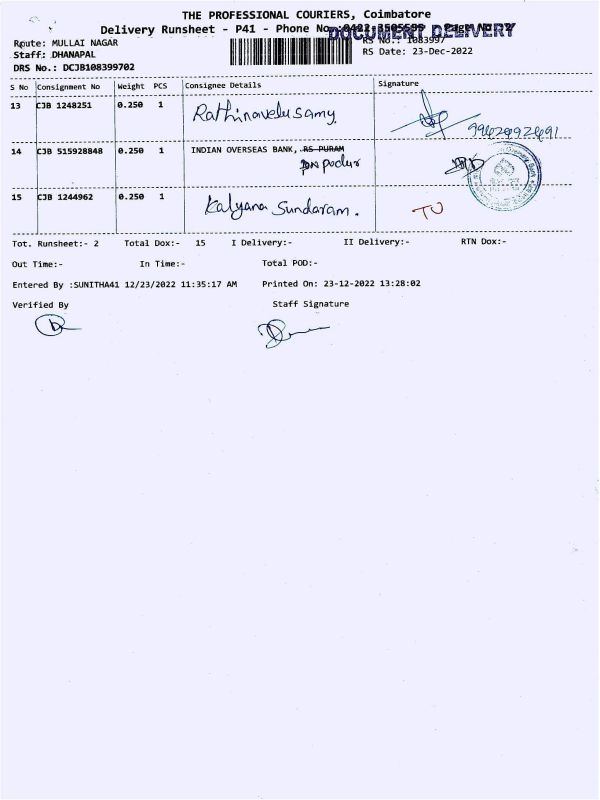 THE PROFESSIONAL COURIERS, Coimbatore
Delivery Runsheet - P41 - Phone No.:0422-3505595 Page No. 2/2
DOCUMENT DELIVERY
Route: MULLAI NAGAR RS No.: 1083997
Staff: DHANAPAL RS Date: 23-Dec-2022
DRS No.: DCJB108399702
S No Consignment No Weight PCS Consignee Details Signature
13 CJB 1248251 0.250 1 Rathinavelusamy
14 CJB 515928848 0.250 1 INDIAN OVERSEAS BANK, RS PURAM
15 CJB 1244962 0.250 1 Kalyana Sundaram.
Tot. Runsheet:- 2 Total Dox:- 15 I Delivery:- II Delivery:- RTN Dox:-
Out Time:- In Time:- Total POD:-
Entered By :SUNITHA41 12/23/2022 11:35:17 AM Printed On: 23-12-2022 13:28:02
Verified By Staff Signature